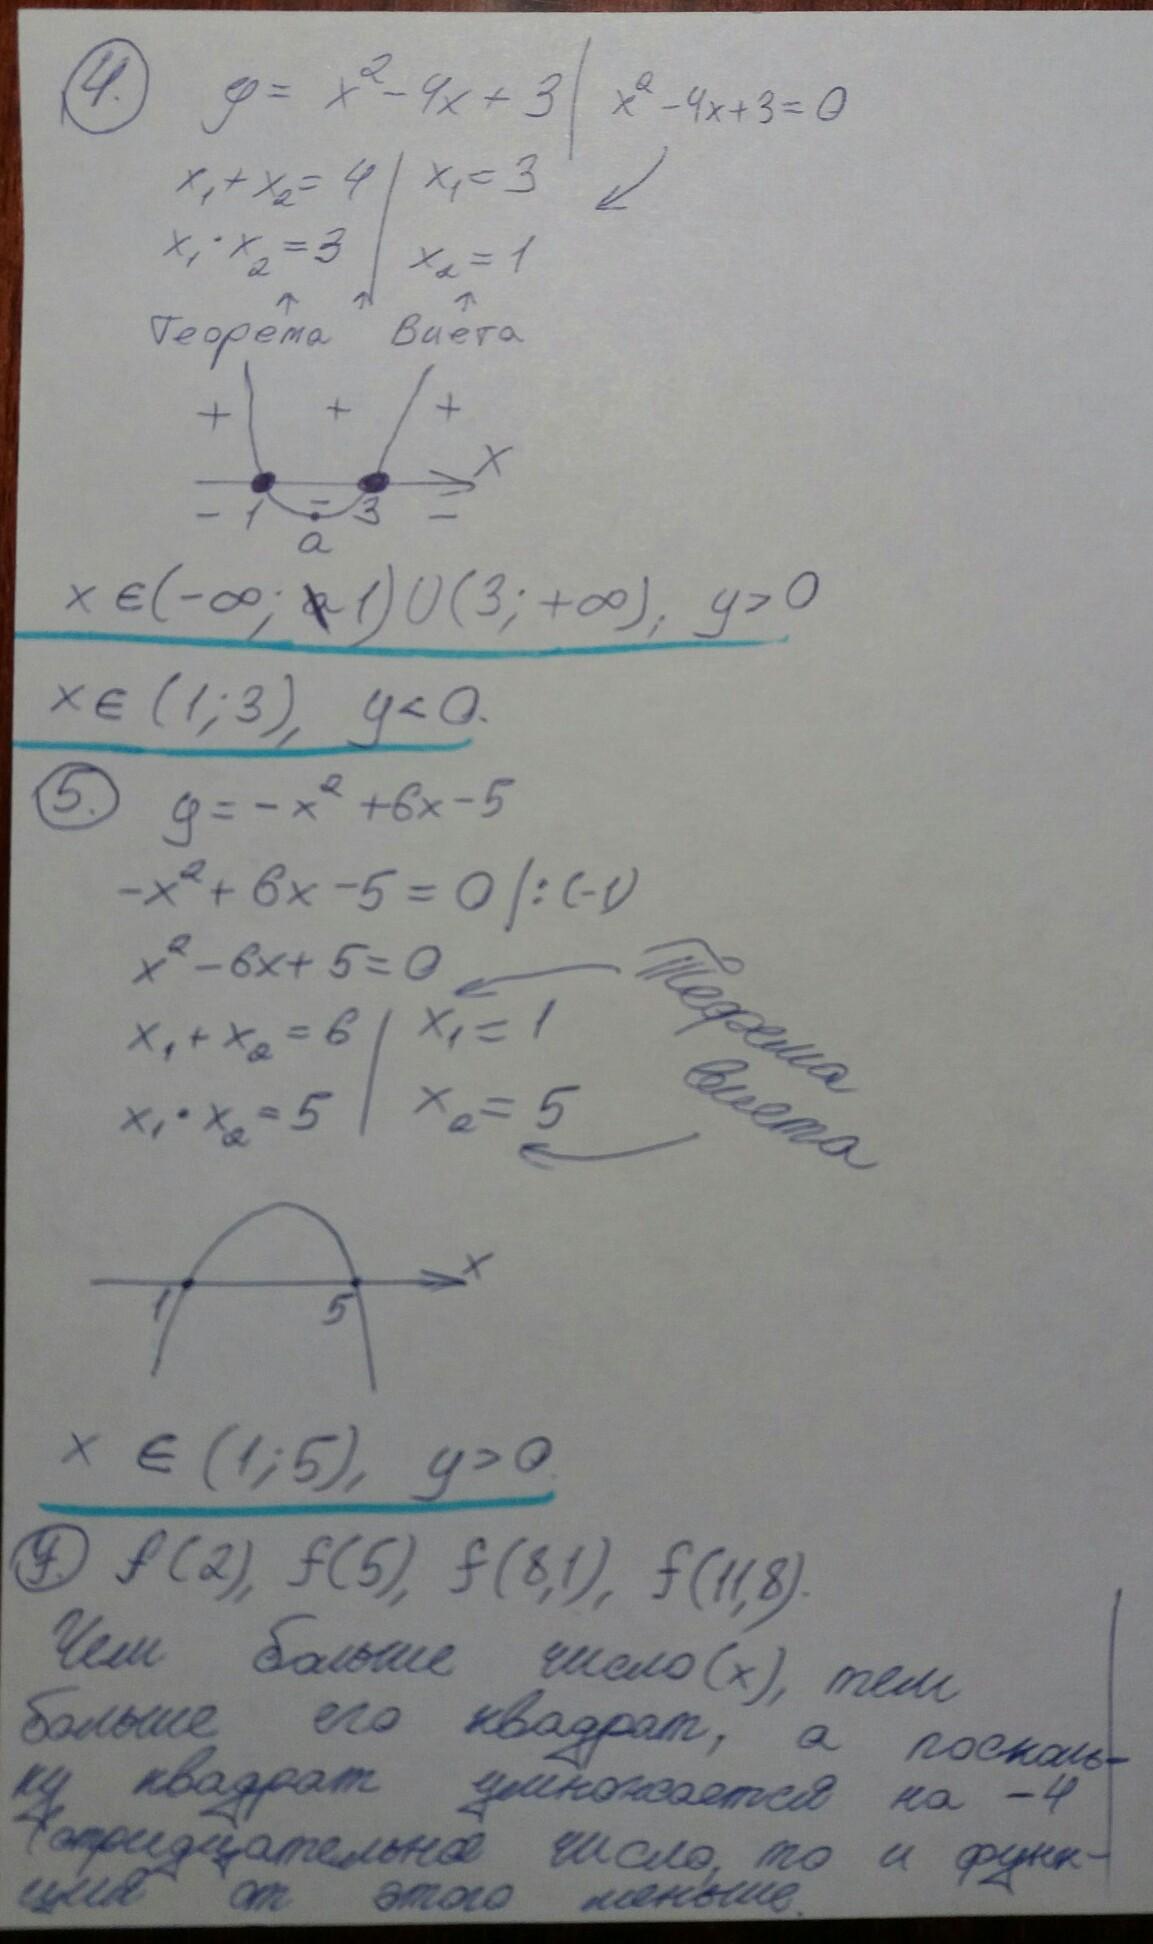 4. y = x² - 4x + 3 | x² - 4x + 3 = 0
x₁ + x₂ = 4 | x₁ = 3
x₁ · x₂ = 3 | x₂ = 1
Теорема Виета
+ + +
x
- 1 - 3 -
a
x ∈ (-∞; 1) ∪ (3; +∞), y > 0
x ∈ (1; 3), y < 0.
5. y = -x² + 6x - 5
-x² + 6x - 5 = 0 |: (-1)
x² - 6x + 5 = 0
x₁ + x₂ = 6 | x₁ = 1
x₁ · x₂ = 5 | x₂ = 5
Теорема
Виета
x
1 5
x ∈ (1; 5), y > 0.
7. f(2), f(5), f(8,1), f(11,8).
Чем больше число (x), тем
больше его квадрат, а посколь-
ку квадрат умножается на -4
(отридцательное число, то и функ-
ция от этого меньше.